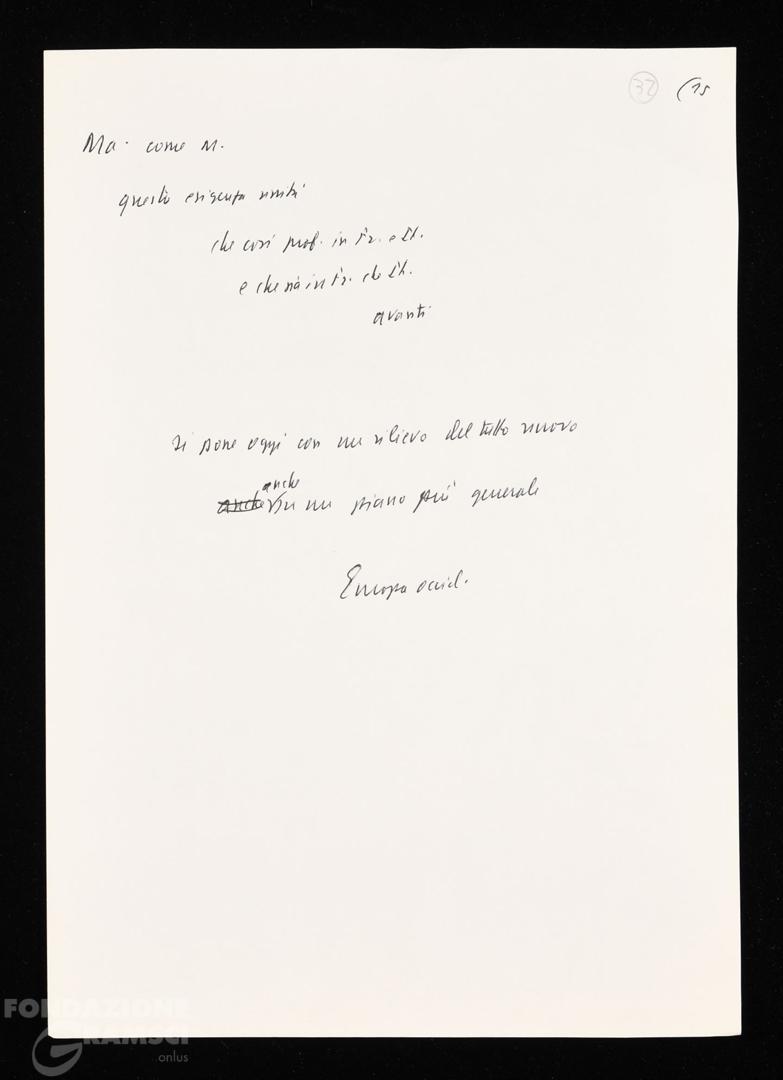 32 (15
Ma. come
questa esigenza unità
che così prof. in Fr. e It.
e che sia in Fr. che It.
avanti
si pone oggi con un rilievo del tutto nuovo
anche
anche su un piano più generale
Europa occid.
FONDAZIONE
GRAMSCI
.onlus